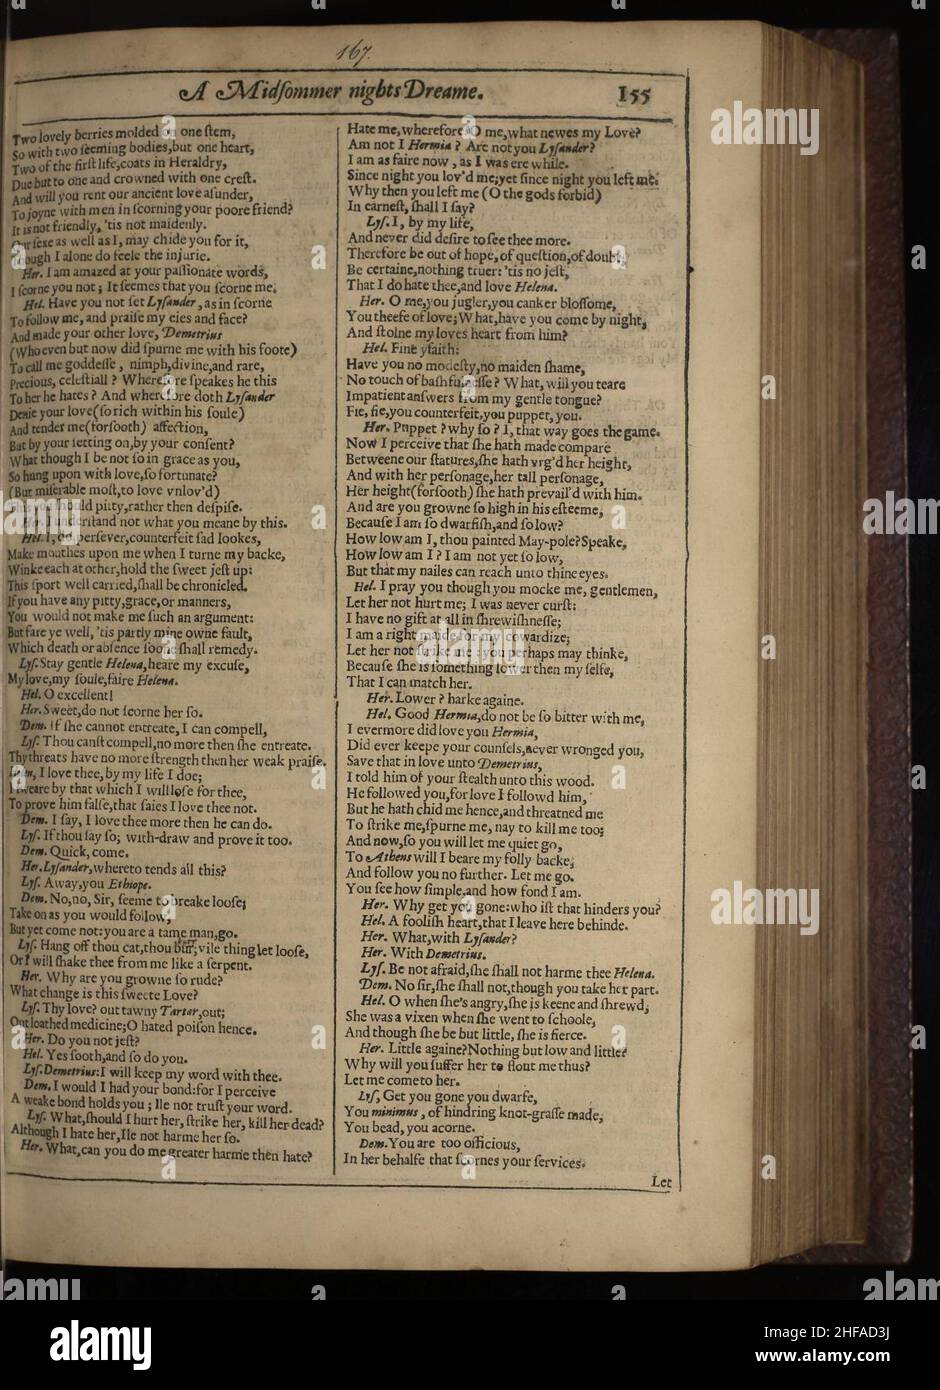 167.
A Midſommer nights Dreame. 155
Two lovely berries molded on one ſtem,
So with two ſeeming bodies,but one heart,
Two of the firſt life,coats in Heraldry,
Due but to one and crowned with one creſt.
And will you rent our ancient love aſunder,
To joyne with men in ſcorning your poore friend?
It is not friendly, 'tis not maidenly.
Our ſexe as well as I, may chide you for it,
Though I alone do feele the injurie.
Her. I am amazed at your paſſionate words,
I ſcorne you not; It ſeemes that you ſcorne me.
Hel. Have you not ſet Lyſander, as in ſcorne
To follow me, and praiſe my eies and face?
And made your other love, Demetrius
(Who even but now did ſpurne me with his foote)
To call me goddeſſe, nimph,divine,and rare,
Precious, celeſtiall? Wherefore ſpeakes he this
To her he hates? And wherefore doth Lyſander
Denie your love(ſo rich within his ſoule)
And tender me(forſooth) affection,
But by your ſetting on,by your conſent?
What though I be not ſo in grace as you,
So hung upon with love,ſo fortunate?
(But miſerable moſt,to love vnlov'd)
This you ſhould pitty,rather then deſpiſe.
Her. I underſtand not what you meane by this.
Hel. I, do perſever,counterfeit ſad lookes,
Make mouthes upon me when I turne my backe,
Winke each at other,hold the ſweet jeſt up:
This ſport well carried,ſhall be chronicled.
If you have any pitty,grace,or manners,
You would not make me ſuch an argument:
But fare ye well, 'tis partly mine owne fault,
Which death or abſence ſoone ſhall remedy.
Lyſ. Stay gentle Helena,heare my excuſe,
My love,my ſoule,faire Helena.
Hel. O excellent!
Her. Sweet,do not ſcorne her ſo.
Dem. If ſhe cannot entreate, I can compell,
Lyſ. Thou canſt compell,no more then ſhe entreate.
Thy threats have no more ſtrength then her weak praiſe.
Helen, I love thee,by my life I doe;
I ſweare by that which I will loſe for thee,
To prove him falſe,that ſaies I love thee not.
Dem. I ſay, I love thee more then he can do.
Lyſ. If thou ſay ſo; with-draw and prove it too.
Dem. Quick,come.
Her. Lyſander,whereto tends all this?
Lyſ. Away,you Ethiope.
Dem. No,no, Sir, ſeeme to breake looſe;
Take on as you would follow,
But yet come not:you are a tame man,go.
Lyſ. Hang off thou cat,thou bur;vile thing let looſe,
Or I will ſhake thee from me like a ſerpent.
Her. Why are you growne ſo rude?
What change is this ſweete Love?
Lyſ. Thy love? out tawny Tartar,out;
Out loathed medicine;O hated poiſon hence.
Her. Do you not jeſt?
Hel. Yes ſooth,and ſo do you.
Lyſ. Demetrius:I will keep my word with thee.
Dem. I would I had your bond:for I perceive
A weake bond holds you; Ile not truſt your word.
Lyſ. What,ſhould I hurt her, ſtrike her, kill her dead?
Although I hate her,Ile not harme her ſo.
Her. What,can you do me greater harme then hate?
Hate me,wherefore? O me,what newes my Love?
Am not I Hermia? Are not you Lyſander?
I am as faire now, as I was ere while.
Since night you lov'd me;yet ſince night you left me.
Why then you left me (O the gods forbid)
In earneſt, ſhall I ſay?
Lyſ. I, by my life,
And never did deſire to ſee thee more.
Therefore be out of hope, of queſtion,of doubt;
Be certaine,nothing truer: 'tis no jeſt,
That I do hate thee,and love Helena.
Her. O me,you jugler,you canker bloſſome,
You theefe of love;What,have you come by night,
And ſtolne my loves heart from him?
Hel. Fine yfaith:
Have you no modeſty,no maiden ſhame,
No touch of baſhfulneſſe? What, will you teare
Impatient anſwers from my gentle tongue?
Fie, fie,you counterfeit,you puppet, you.
Her. Puppet? why ſo? I, that way goes the game.
Now I perceive that ſhe hath made compare
Betweene our ſtatures,ſhe hath vrg'd her height,
And with her perſonage,her tall perſonage,
Her height(forſooth) ſhe hath prevail'd with him.
And are you growne ſo high in his eſteeme,
Becauſe I am ſo dwarfiſh,and ſo low?
How low am I, thou painted May-pole?Speake,
How low am I? I am not yet ſo low,
But that my nailes can reach unto thine eyes.
Hel. I pray you though you mocke me, gentlemen,
Let her not hurt me; I was never curſt:
I have no gift at all in ſhrewiſhneſſe;
I am a right maide for my cowardize;
Let her not ſtrike me: you perhaps may thinke,
Becauſe ſhe is ſomething lower then my ſelfe,
That I can match her.
Her. Lower? harke againe.
Hel. Good Hermia,do not be ſo bitter with me,
I evermore did love you Hermia,
Did ever keepe your counſels,never wronged you,
Save that in love unto Demetrius,
I told him of your ſtealth unto this wood.
He followed you,for love I followd him,
But he hath chid me hence,and threatned me
To ſtrike me,ſpurne me, nay to kill me too;
And now,ſo you will let me quiet go,
To Athens will I beare my folly backe,
And follow you no further. Let me go.
You ſee how ſimple,and how fond I am.
Her. Why get you gone:who iſt that hinders you?
Hel. A fooliſh heart,that I leave here behinde.
Her. What,with Lyſander?
Her. With Demetrius.
Lyſ. Be not afraid,ſhe ſhall not harme thee Helena.
Dem. No ſir,ſhe ſhall not,though you take her part.
Hel. O when ſhe's angry,ſhe is keene and ſhrewd,
She was a vixen when ſhe went to ſchoole,
And though ſhe be but little, ſhe is fierce.
Her. Little againe?Nothing but low and little?
Why will you ſuffer her to flout me thus?
Let me come to her.
Lyſ, Get you gone you dwarfe,
You minimus, of hindring knot-graſſe made,
You bead, you acorne.
Dem. You are too officious,
In her behalfe that ſcornes your ſervices.
Let
alamy
alamy
Image ID: 2HFAD3J
www.alamy.com